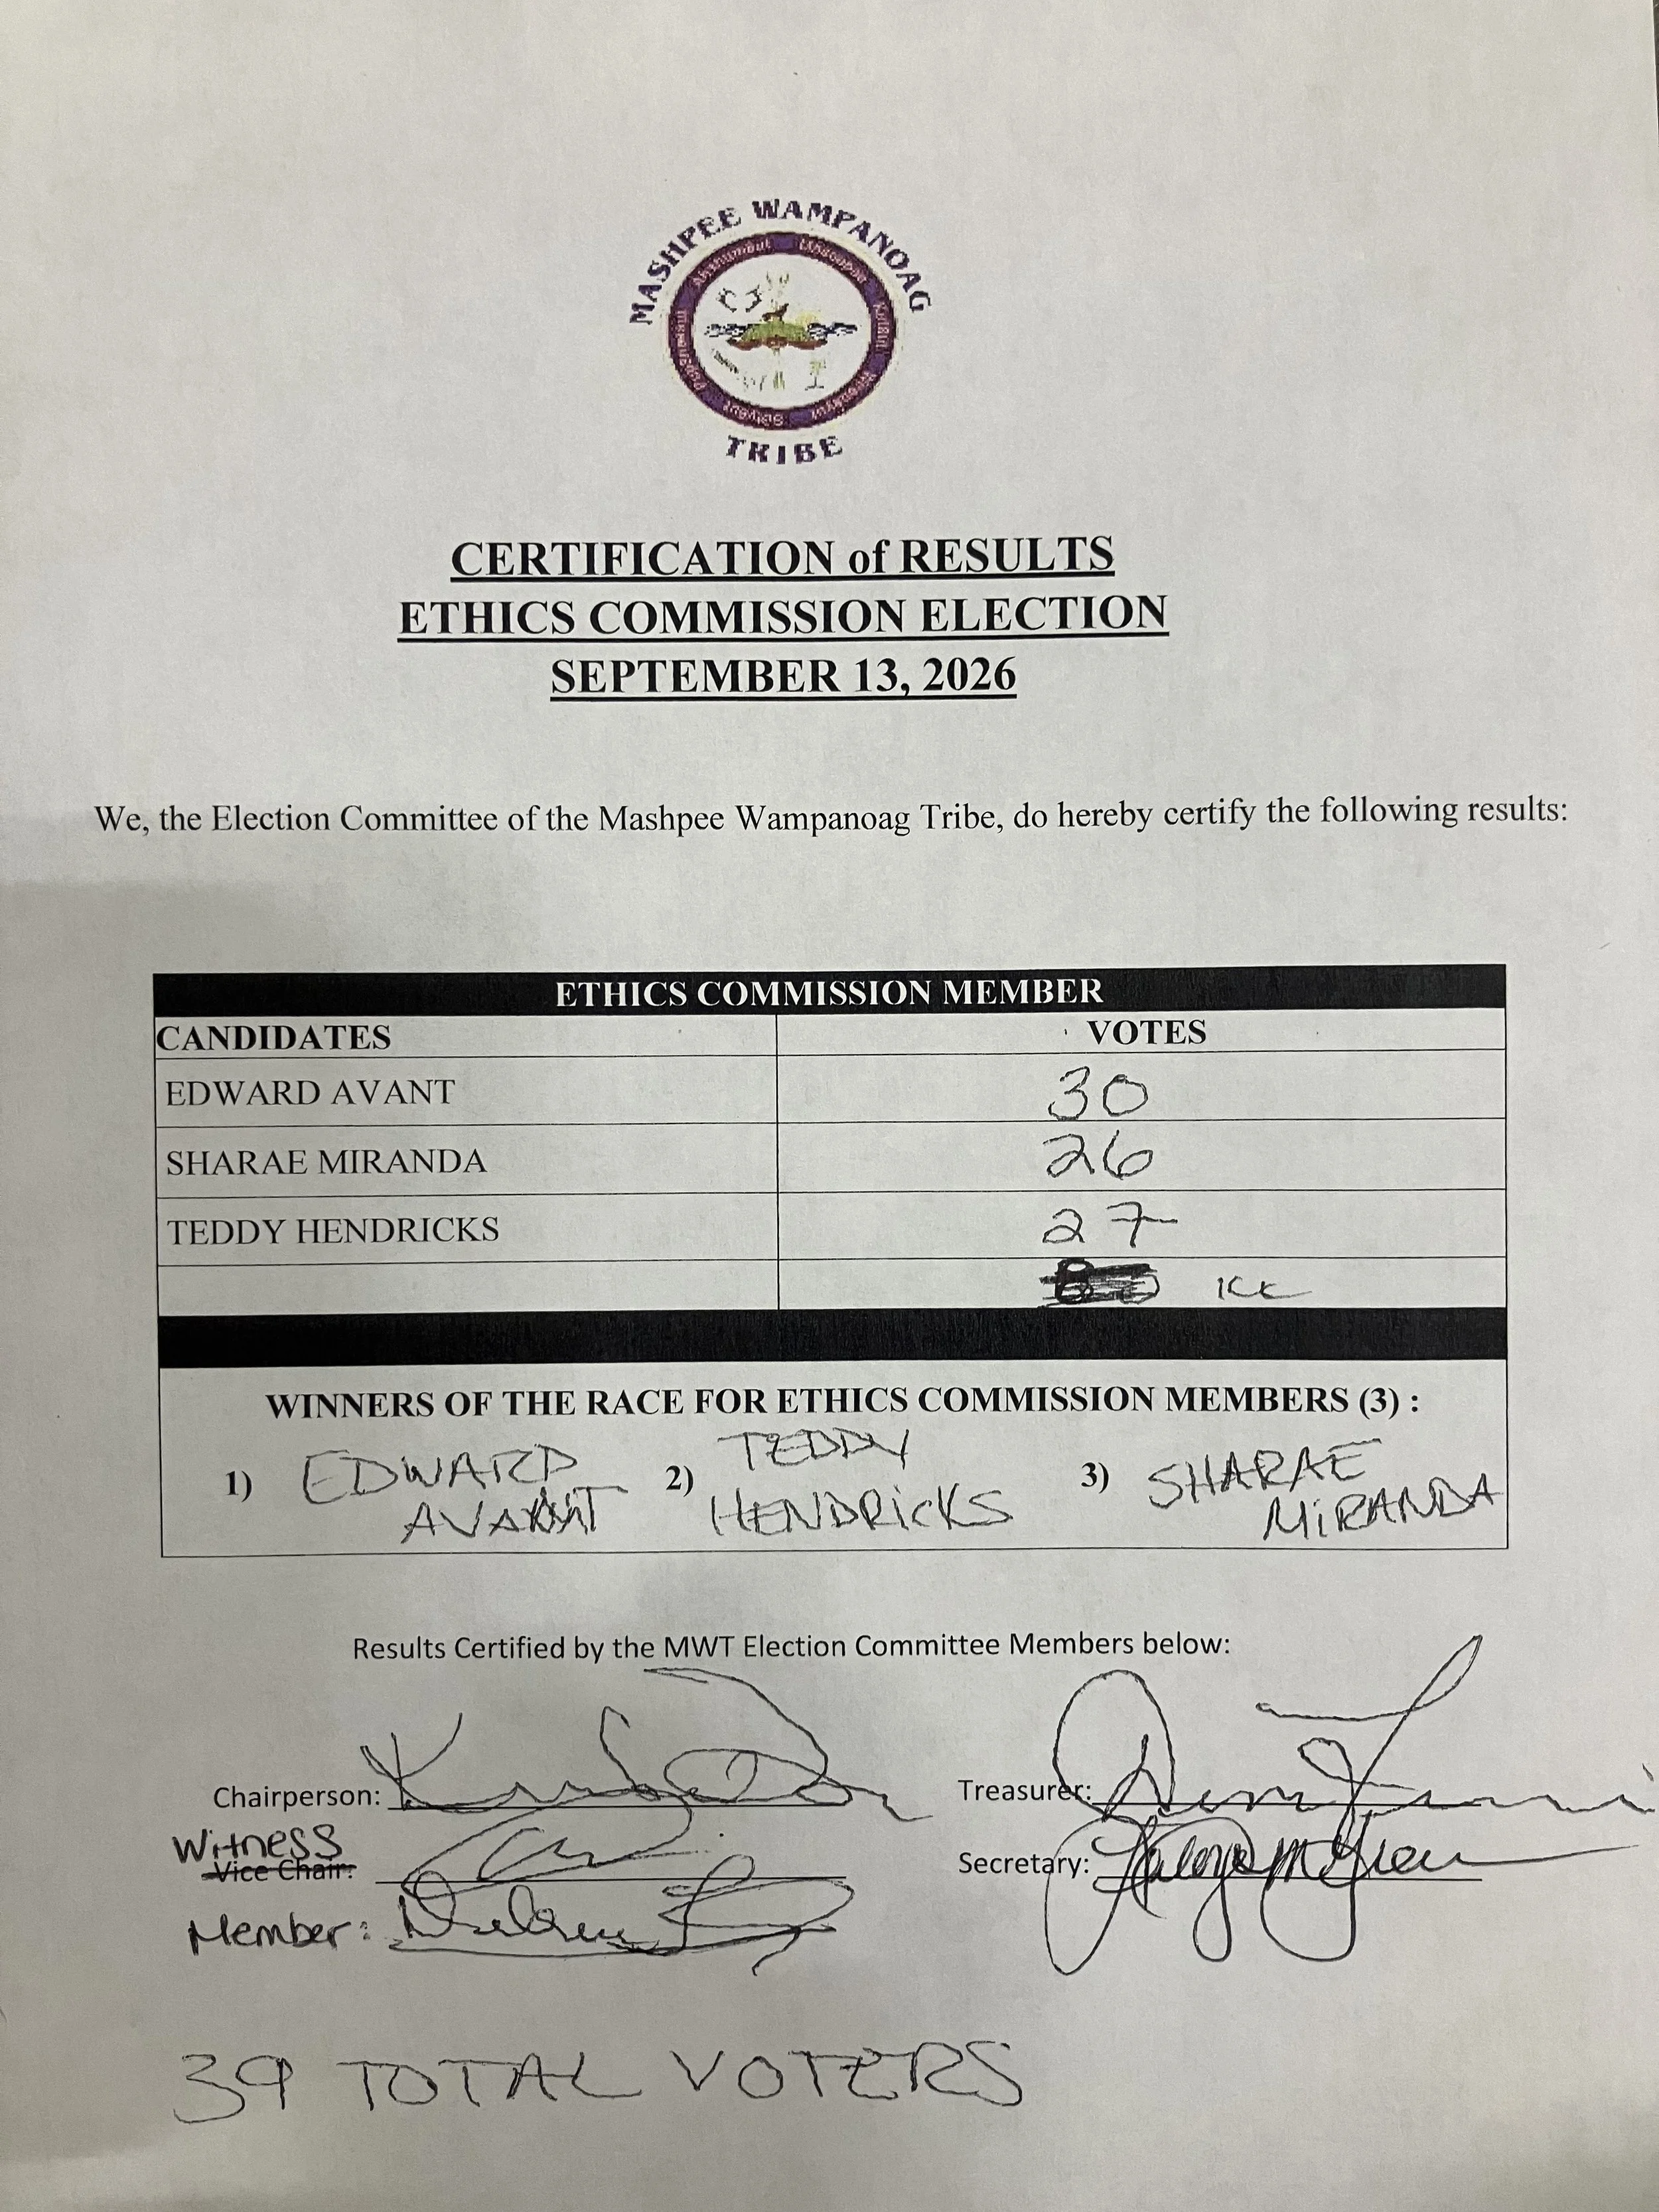 MASHPEE WAMPANOAG
TRIBE
CERTIFICATION of RESULTS
ETHICS COMMISSION ELECTION
SEPTEMBER 13, 2026
We, the Election Committee of the Mashpee Wampanoag Tribe, do hereby certify the following results:
ETHICS COMMISSION MEMBER
CANDIDATES VOTES
EDWARD AVANT 30
SHARAE MIRANDA 26
TEDDY HENDRICKS 27
WINNERS OF THE RACE FOR ETHICS COMMISSION MEMBERS (3) :
1) EDWARD AVANT 2) TEDDY HENDRICKS 3) SHARAE MIRANDA
Results Certified by the MWT Election Committee Members below:
Chairperson: Treasurer:
Witness
Vice Chair: Secretary:
Member:
39 TOTAL VOTERS